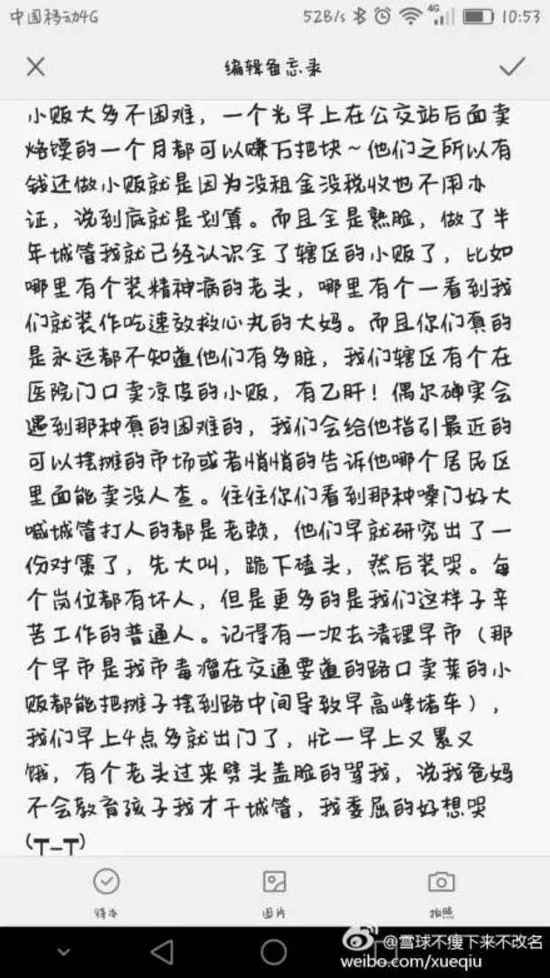 中国移动4G 52B/s 4G 10:53
编辑备忘录
小贩大多不困难，一个光早上在公交站后面卖
烙馍的一个月都可以赚万把块~他们之所以有
钱还做小贩就是因为没租金没税收也不用办
证，说到底就是划算。而且全是熟脸，做了半
年城管我就已经认识全了辖区的小贩了，比如
哪里有个装精神病的老头，哪里有个一看到我
们就装作吃速效救心丸的大妈。而且你们真的
是永远都不知道他们有多脏，我们辖区有个在
医院门口卖凉皮的小贩，有乙肝！偶尔确实会
遇到那种真的困难的，我们会给他指引最近的
可以摆摊的市场或者悄悄的告诉他哪个居民区
里面能卖没人查。往往你们看到那种嗓门好大
喊城管打人的都是老赖，他们早就研究出了一
份对策了，先大叫，跪下磕头，然后装哭。每
个岗位都有坏人，但是更多的是我们这样子辛
苦工作的普通人。记得有一次去清理早市（那
个早市是我市毒瘤在交通要道的路口卖菜的小
贩都能把摊子摆到路中间导致早高峰堵车），
我们早上4点多就出门了，忙一早上又累又
饿，有个老头过来劈头盖脸的骂我，说我爸妈
不会教育孩子我才干城管，我委屈的好想哭
(T_T)
待办 图片 拍照
@雪球不瘦下来不改名
weibo.com/xueqiu